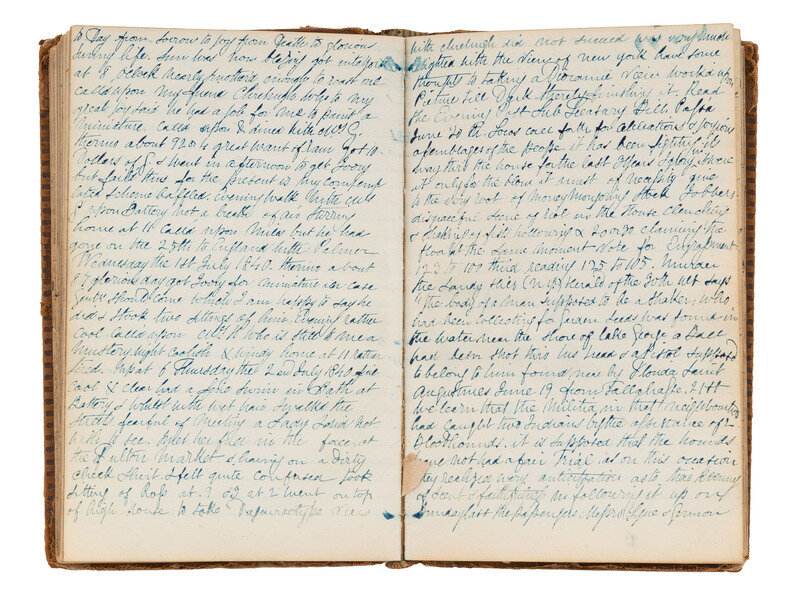 to Day from sorrow to joy from Death to glorious
living life. Sun was now blazing got into york
at 8 oclock nearly hot enough to roast one
called upon my friend who to my
great joy said he had a job for me to paint a
Miniature Called upon & dined with
thermo about 92 in great want of Got 10
Dollars of G & went in afternoon to get Ivory
but failed thus for the present is my
scheme baffled. Evening walk with
upon Battery not a breath of air stirring
home at 11 Called upon Miles but he had
gone on the 25th to England with Palmer
Wednesday the 1st July 1840. thermo about
glorious day got Ivory for miniature in case
should come which I am happy to say he
did & took two sittings of him Evening rather
cool Called upon who is still to me a
Mystery night coolish & windy home at 11 rather
tired up at 6 Thursday the 2nd July 1840 fine
cool & clear had a swim in Bath at
Battery & whilst with wet hair I walked the
streets fearful of meeting a Lady I did not
wish to see. Met her face in the face. at
the Fulton Market & having on a dirty
check shirt I felt quite confused took
sitting of Ross at 9 & at 2 went on top
of high house to take Daguerreotype view
with did not succeed was very much
delighted with the view of new york have some
thoughts to taking a Diorama view worked upon
Picture till Dark thereby finishing it. Read
the Evening Post Sub Treasury Bill Passed
June 30th. Locos call for
assemblages of the people it has been fighting its
way thro the house for the last years I glory were
it only for the blow it must of necessity give
to the very root of money Mongering Stock Jobbers
disgraceful scene of riot in the House clenching
& shaking of fists hollowing & 20 or 30 claiming the
floor at the same moment Vote for Engrossment
123 to 100 third reading 125 to 105. Murder
the Sandy Hill (N.Y.) Herald of the 30th ult says
"the body of a man supposed to be a Shaker, who
had been collecting for Garden seeds was found in
the water near the shore of Lake George a Ball
had been shot thro his head & a Pistol supposed
to belong to him found near by Florida Saint
Augustines June 19 from Tallahasse. 21st
we learn that the Militia in that neighbourhood
had caught two Indians by the assistance of 2
Bloodhounds. it is supposed that the hounds
have not had a fair Trial as on this occasion
they realized every anticipation as to their keeness
of scent & in following it up on
Sunday last the passengers, Messrs & Gannon